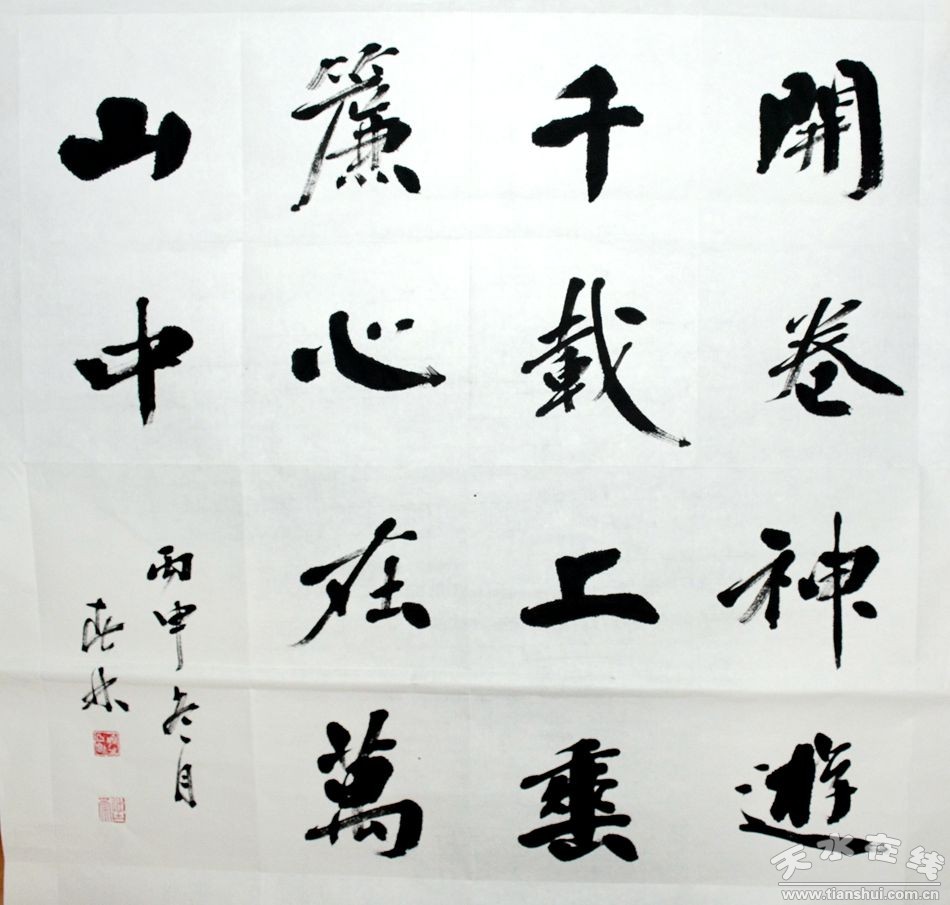 開卷神遊
千載上垂
簾心在萬
山中
丙申冬月
天水在线
www.tianshui.com.cn